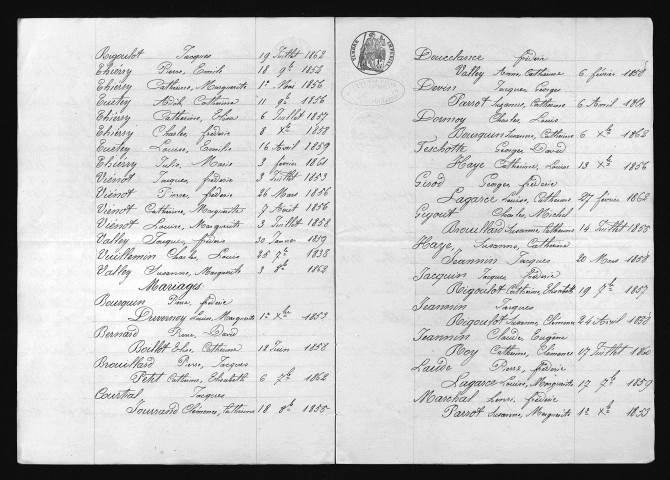 Rigoulot Jacques 19 Juillet 1862
Thiersy Pierre, Emile 18 9b 1853
Thiersy Catherine, Marguerite 1er Mai 1856
Tuetey Catherine 11 9b 1856
Thiersy Catherine, Elisa 6 Juillet 1857
Thiersy Charles, fréderic 8 Xb 1858
Tuetey Louise, Emilie 16 Avril 1859
Thiersy Jules, Marie 3 février 1861
Viénot Jacques, fréderic 3 Juillet 1853
Viénot Pierre, fréderic 26 Mars 1856
Viénot Catherine, Marguerite 7 Août 1856
Viénot Louise, Marguerite 3 Juillet 1858
Valley Jacques, fréderic 30 Janvier 1859
Vuillemin Charles, Louis 25 7b 1838
Valley Susanne, Marguerite 3 8b 1862
Mariages
Bourquin Pierre, fréderic
Duvernoy Louise, Marguerite 1er Xbre 1853
Bernard Pierre, David
Boillot Elise, Catherine 18 Juin 1858
Brouillard Pierre, Jacques
Petit Catherine, Elisabeth 6 7b 1862
Courtal Jacques
Jourrand Clémence, Catherine 18 8b 1855
Doucelance fréderic
Valley Anne, Catherine 6 février 1858
Devin Jacques Georges
Parrot Suzanne, Catherine 6 Avril 1861
Dormoy Charles Louis
Bourquin Suzanne, Catherine 6 Xb 1862
Feschotte Georges David
Haye Catherine, Louise 13 Xb 1856
Girod Georges fréderic
Lagarce Louise, Catherine 27 février 1862
Gigout Charles Michel
Brouillard Suzanne Catherine 14 Juillet 1855
Haye Susanne, Catherine
Jeannin Jacques 20 Mars 1858
Jacquin Jacques fréderic
Rigoulot Catherine, Elisabeth 19 7b 1857
Jeannin Jacques
Rigoulot Suzanne, Clémence 24 Avril 1858
Jeannin Claude, Eugène
Roy Catherine, Clémence 17 Juillet 1860
Laude Pierre, fréderic
Lagarce Louise, Marguerite 12 7b 1859
Marchal Louis, fréderic
Parrot Susanne, Marguerite 1er Xb 1853